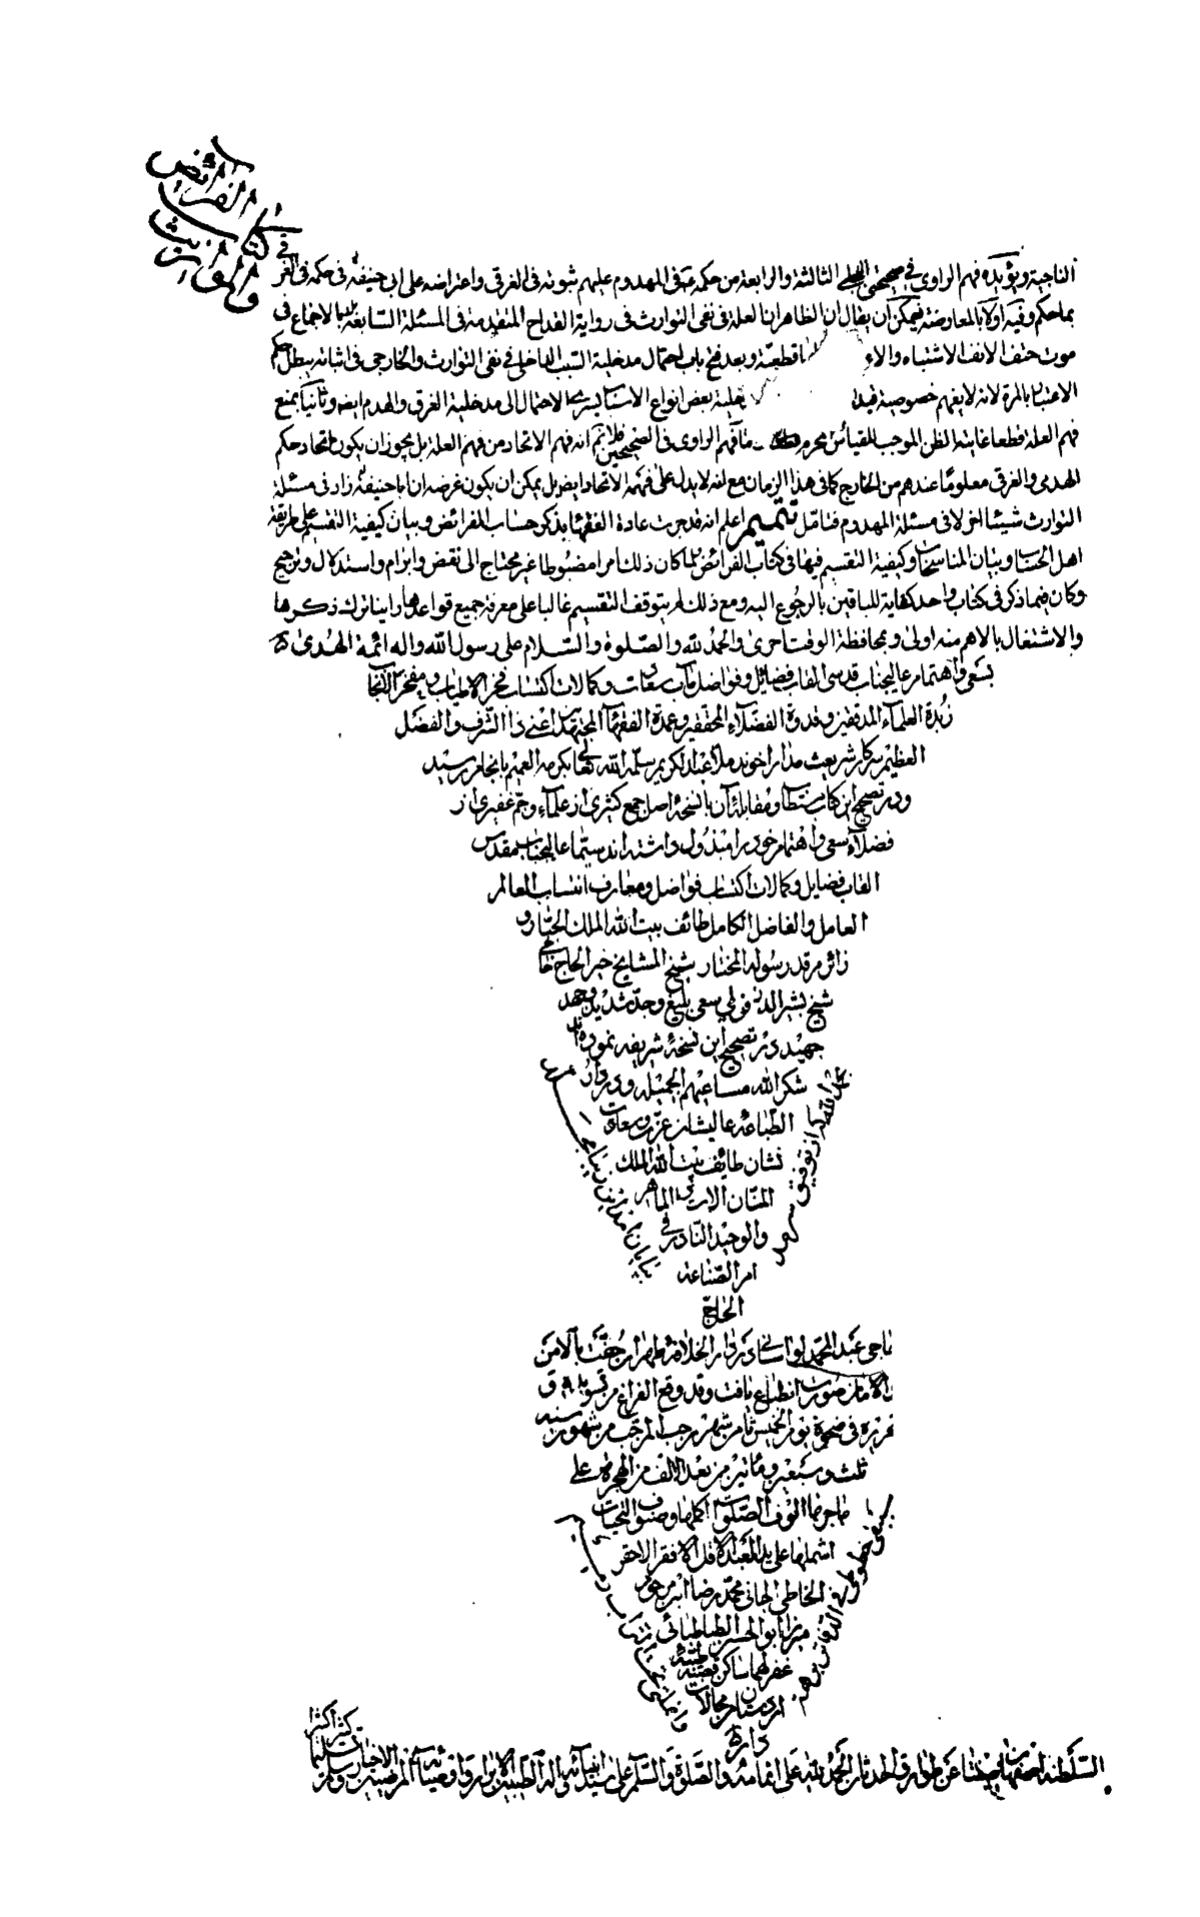 كتاب الفرائض
والمواريث
الناجية ويؤيده فهم الراوى فى صحيحتى البجلى الثالثة والرابعة من حكمه فى المهدوم عليهم ثبوته فى الغرقى واعتراضه على ابى حنيفة فى حكمه فى الغرقى
بما حكم وفيه اولا بالمعارضة فيمكن ان يقال ان الظاهر ان العلة فى نفى التوارث فى رواية القداح المتقدمة فى المسئلة السابقة بالاجماع فى
موت حتف الانف الاشتباه والا قطعية وبعد فتح باب احتمال مدخلية السبب الداخلى فى نفى التوارث والخارجى فى اثباته يبطل حكم
الاعتبار بالمرة لانه لا يفهم خصوصية بعض انواع الاسباب الاحتمال الى مدخلية الغرق والهدم ايضا وثانيا بمنع
فهم العلة قطعا غايته الظن الموجب للقياس المحرم فهم الراوى فى الصحيحين فلا نم انه فهم الاتحاد من فهم العلة بل يجوز ان يكون اتحاد حكم
الهدمى والغرقى معلوما عندهم من الخارج كما فى هذا الزمان مع انه لا يدل على فهمه الاتحاد ايضا بل يمكن ان يكون غرضه ان ابا حنيفة زاد فى مسئلة
التوارث شيئا اخر لا فى مسئلة المهدوم فتامل تتميم اعلم انه قد جرت عادة الفقهاء بذكر حساب الفرائض وبيان كيفية التقسيم على طريقة
اهل الحساب وبيان المناسخات وكيفية التقسيم فيها فى كتاب الفرائض لما كان ذلك امرا مضبوطا غير محتاج الى نقض وابرام واستدلال وترجيح
وكان فيما ذكر فى كتاب واحد كفاية للباقين بالرجوع اليه ومع ذلك لم يتوقف التقسيم غالبا على معرفة جميع قواعدها راينا ترك ذكرها
والاشتغال بالاهم منه اولى وبمحافظة الوقت احرى والحمد لله والصلوة والسلام على رسول الله واله ائمة الهدى
بسعى واهتمام عاليجناب قدسى القاب فضايل وفواضل مآب سعادت وكمالات اكتساب فخر الاطياب ومفخر الانجاب
زبدة العلماء المدققين وقدوة الفضلاء المحققين وعمدة الفقهاء المجتهدين اعنى ذا الشرف والفضل
العظيم سركار شريعت مدار اخوند ملا عبد الكريم سلمه الله تعالى بكرمه العميم بانجام رسيد
ودر تصحيح اين كتاب مستطاب ومقابله آن با نسخه اصل جمع كثيرى از علماء وجم غفيرى از
فضلاء سعى واهتمام خود را مبذول داشته اند سيما عاليجناب مقدس
القاب فضايل وكمالات اكتساب فواضل ومعارف انتساب العالم
العامل والفاضل الكامل طائف بيت الله الملك الجبار و
زائر مرقد رسوله المختار شيخ المشايخ خير الحاج حاجى
شيخ بشير الدزفولى سعى بليغ وجد شديد وجهد
جهيد در تصحيح اين نسخه شريفه نموده اند
شكر الله مساعيهم الجميلة ودر دار
الطباعه عاليشان عزت وسعادت
نشان طايف بيت الله الملك
المنان الاستاد الماهر
والوحيد النادر فى
امر الصناعة
الحاج
حاجى عبد المحمد لواسانى در دار الخلافه طهران حفت بالامن
والامان صورت انطباع يافت وقد وقع الفراغ من تسويد
فى ضحوة يوم الخميس ثامن شهر رجب المرجب من شهور سنه
ثلث وسبعين ومأتين من بعد الالف من الهجرة على
هاجرها الوف الصلوات اكملها وصنوف التحيات
اشملها على يد العبد الاقل الافقر الاحقر
الخاطى الجانى محمد رضا ابن مرحوم
ميرزا ابو الحسن الطباطبائى
غفر لهما ساكن قصبه طيبه
اردستان من محالات
دار
السلطنه اصفهان صينتا عن طوارق الحدثان الحمد لله على اتمامه والصلوة والسلم على سيد انبيائه وآله الطيبين الابرار وعترته الاخيار وسلم تسليما
كثيرا كثيرا